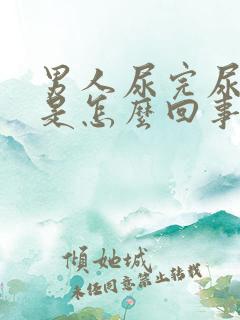 男人尿完尿
是怎麼回事
傾她城
未经同意禁止转载